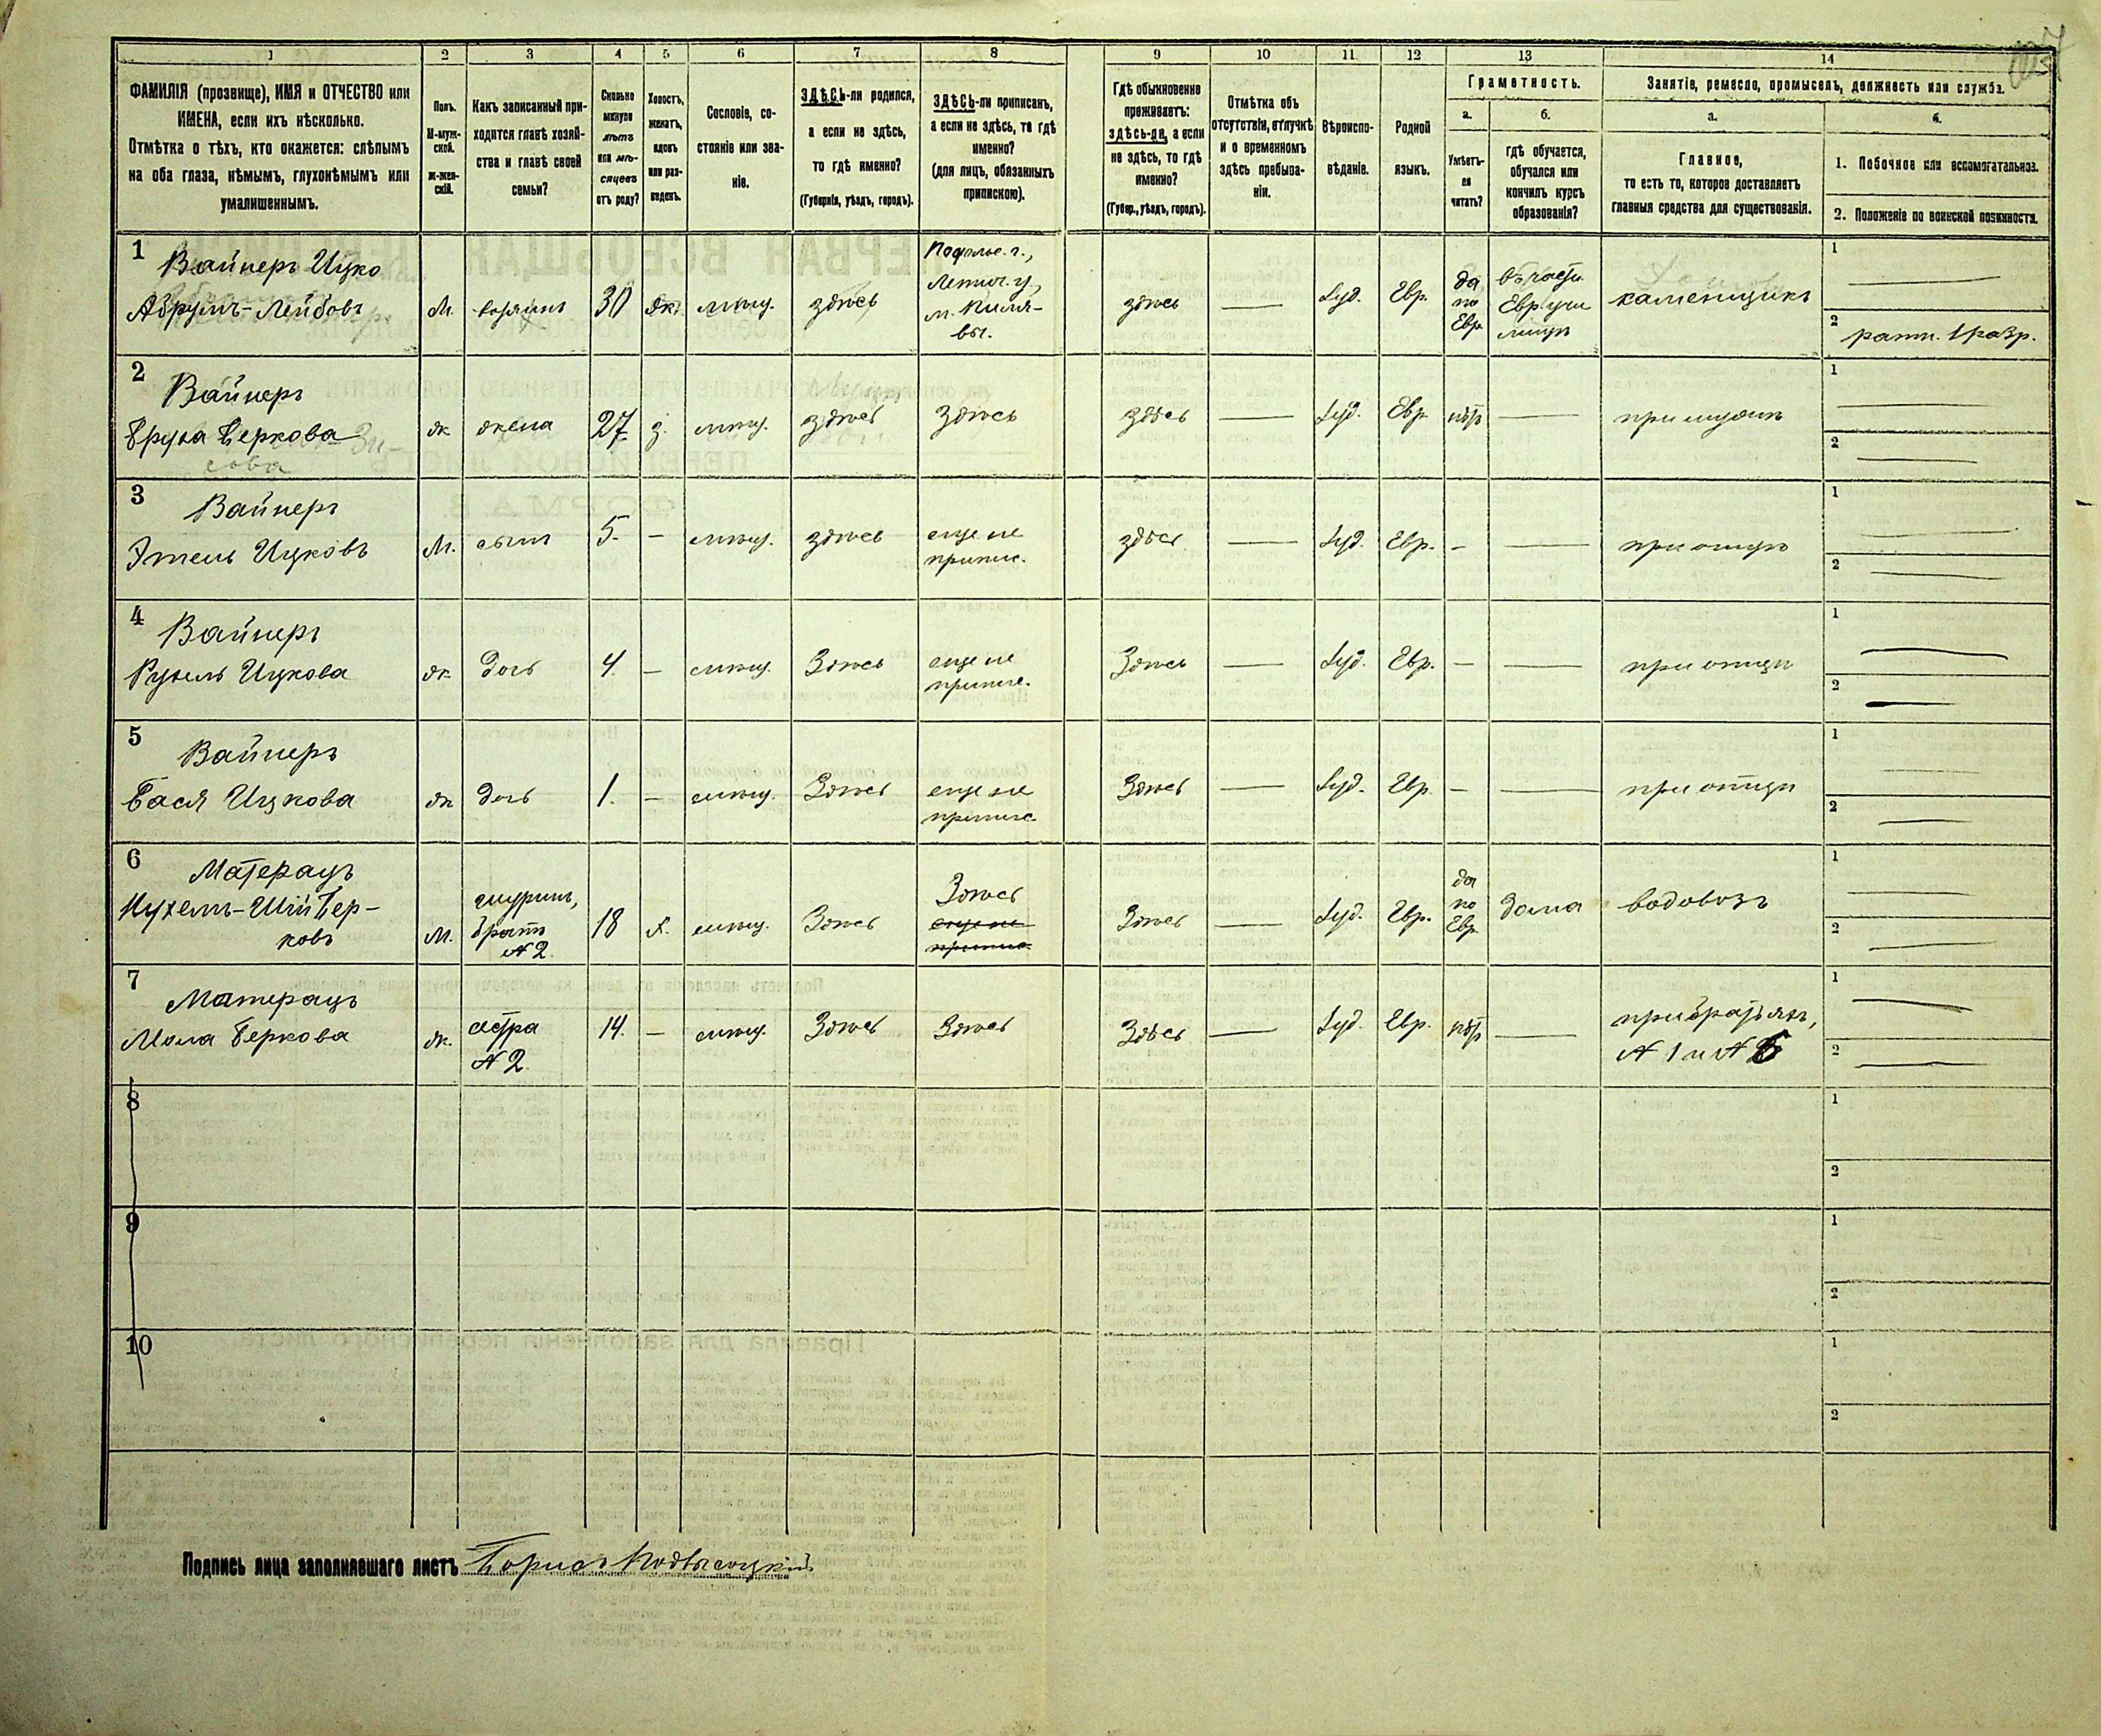 1 2 3 4 5 6 7 8 9 10 11 12 13 14
ФАМИЛІЯ (прозвище), ИМЯ и ОТЧЕСТВО или
ИМЕНА, если ихъ нѣсколько.
Отмѣтка о тѣхъ, кто окажется: слѣпымъ
на оба глаза, нѣмымъ, глухонѣмымъ или
умалишеннымъ.
Полъ.
М-муж-
ской.
Ж-жен-
скій.
Какъ записанный при-
ходится главѣ хозяй-
ства и главѣ своей
семьи?
Сколько
минуло
лѣтъ
или мѣ-
сяцевъ
отъ роду?
Холостъ,
женатъ,
вдовъ
или раз-
веденъ.
Сословіе, со-
стояніе или зва-
ніе.
ЗДѢСЬ-ли родился,
а если не здѣсь,
то гдѣ именно?
(Губернія, уѣздъ, городъ).
ЗДѢСЬ-ли приписанъ,
а если не здѣсь, то гдѣ
именно?
(для лицъ, обязанныхъ
припискою).
Гдѣ обыкновенно
проживаетъ:
здѣсь-ли, а если
не здѣсь, то гдѣ
именно?
(Губер., уѣздъ, городъ).
Отмѣтка объ
отсутствіи, отлучкѣ
и о временномъ
здѣсь пребыва-
ніи.
Вѣроиспо-
вѣданіе.
Родной
языкъ.
Грамотность.
а.
Умѣетъ-
ли
читать?
б.
гдѣ обучается,
обучался или
кончилъ курсъ
образованія?
Занятіе, ремесло, промыселъ, должность или служба.
а.
Главное,
то есть то, которое доставляетъ
главныя средства для существованія.
б.
1. Побочное или вспомогательное.
2. Положеніе по воинской повинности.
1
Вайнеръ Ицко
Абрумъ-Лейбовъ
М.
хозяинъ
30
ж.
мѣщ.
здѣсь
Подольс. г.,
Летич. у,
м.
здѣсь
—
Іуд.
Евр.
да
по
Евр.
въ части.
Евр. учи
лищѣ
каменщикъ
1 —
2 ратн. 1 разр.
2
Вайнеръ
Беркова
ж
жена
27
з.
мѣщ.
здѣсь
Здѣсь
здѣсь
—
Іуд.
Евр.
нѣт
—
при мужѣ
1 —
2 —
3
Вайнеръ
Этель Ицковъ
М.
сынъ
5.
—
мѣщ.
здѣсь
еще не
припис.
здѣсь
—
Іуд.
Евр.
—
—
при отцѣ
1 —
2 —
4
Вайнеръ
Рухель Ицкова
ж
дочь
4.
—
мѣщ.
Здѣсь
еще не
припис.
Здѣсь
—
Іуд.
Евр.
—
—
при отцѣ
1 —
2 —
5
Вайнеръ
Бася Ицкова
ж
дочь
1.
—
мѣщ.
Здѣсь
еще не
припис.
Здѣсь
—
Іуд.
Евр.
—
—
при отцѣ
1 —
2 —
6
Матерацъ
Бер-
ковъ
М.
шуринъ,
братъ
№ 2.
18
х.
мѣщ.
Здѣсь
Здѣсь
еще не
припис.
Здѣсь
—
Іуд.
Евр.
да
по
Евр.
дома
водовозъ
1 —
2 —
7
Матерацъ
Беркова
ж.
сестра
№ 2.
14.
—
мѣщ.
Здѣсь
Здѣсь
Здѣсь
—
Іуд.
Евр.
нѣт
—
при братьяхъ,
№ 1 и № 6
1 —
2 —
8
1
2
9
1
2
10
1
2
Подпись лица заполнявшаго листъ Борисъ Подвысоцкій